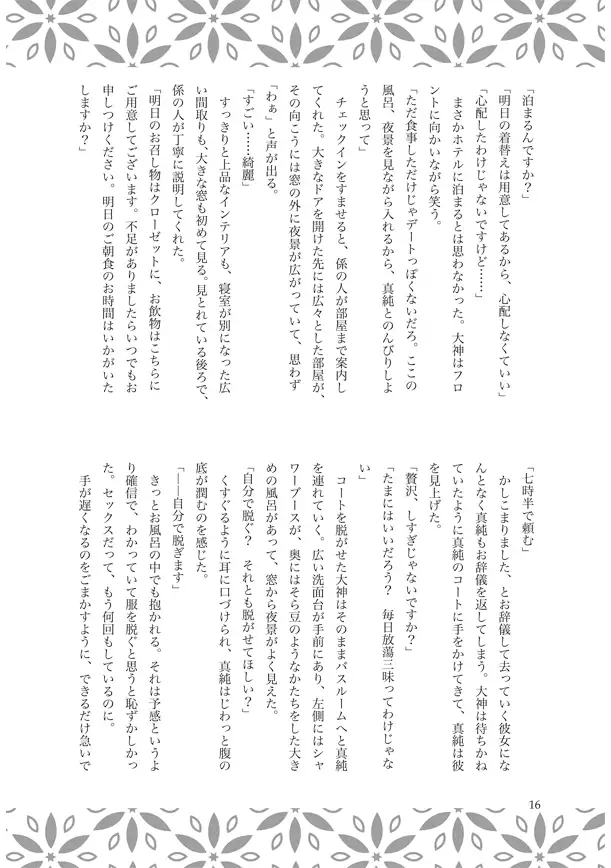 「泊まるんですか？」
「明日の着替えは用意してあるから、心配しなくていい」
「心配したわけじゃないですけど……」
まさかホテルに泊まるとは思わなかった。大神はフロ
ントに向かいながら笑う。
「ただ食事しただけじゃデートっぽくないだろ。ここの
風呂、夜景を見ながら入れるから、真純とのんびりしよ
うと思って」
チェックインをすませると、係の人が部屋まで案内し
てくれた。大きなドアを開けた先には広々とした部屋が、
その向こうには窓の外に夜景が広がっていて、思わず
「わぁ」と声が出る。
「すごい……綺麗」
すっきりと上品なインテリアも、寝室が別になった広
い間取りも、大きな窓も初めて見る。見とれている後ろで、
係の人が丁寧に説明してくれた。
「明日のお召し物はクローゼットに、お飲物はこちらに
ご用意してございます。不足がありましたらいつでもお
申しつけください。明日のご朝食のお時間はいかがいた
しますか？」
「七時半で頼む」
かしこまりました、とお辞儀して去っていく彼女にな
んとなく真純もお辞儀を返してしまう。大神は待ちかね
ていたように真純のコートに手をかけてきて、真純は彼
を見上げた。
「贅沢、しすぎじゃないですか？」
「たまにはいいだろう？　毎日放蕩三昧ってわけじゃな
い」
コートを脱がせた大神はそのままバスルームへと真純
を連れていく。広い洗面台が手前にあり、左側にはシャ
ワーブースが、奥にはそら豆のようなかたちをした大き
めの風呂があって、窓から夜景がよく見えた。
「自分で脱ぐ？　それとも脱がせてほしい？」
くすぐるように耳に口づけられ、真純はじわっと腹の
底が潤むのを感じた。
「――自分で脱ぎます」
きっとお風呂の中でも抱かれる。それは予感というよ
り確信で、わかっていて服を脱ぐと思うと恥ずかしかっ
た。セックスだって、もう何回もしているのに。
手が遅くなるのをごまかすように、できるだけ急いで
16